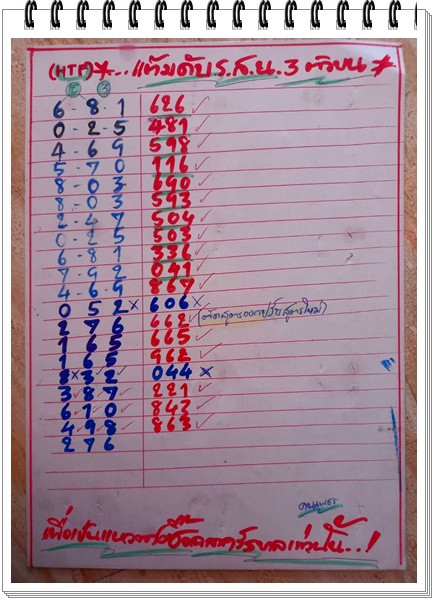 (HTP)*...แต้มดับ ร.ส.น. 3 ตัวบน *
② ③
6-8-1 626 ✓
0-2-5 481 ✓
4-6-9 598 ✓
5-7-0 116 ✓
8-0-3 690 ✓
8-0-3 593 ✓
2-4-7 504 ✓
0-2-5 503 ✓
6-8-1 336 ✓
7-9-2 041 ✓
4-6-9 867 ✓
0 5 2 × 606 ×
2 7 6 662 ✓
1 6 5 665 ✓
1 6 5 962 ✓
8 × 3 2 ✓ 044 ×
3 ✓ 8 ✓ 7 ✓ 221 ✓
6 ✓ 1 ✓ 0 ✓ 843 ✓
4 ✓ 9 ✓ 8 ✓ 863 ✓
2 7 6
เพื่อเป็นแนวทางซื้อสลากรัฐบาลเท่านั้น..!